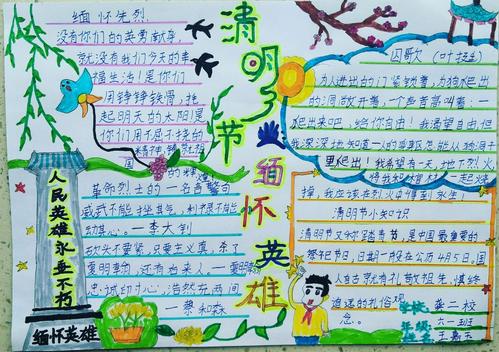 清明节
缅怀英雄
缅怀先烈,
没有你们的英勇献身,
就没有我们今天的幸
福生活!是你们
用铮铮铁骨,托
起明天的太阳是
你们用不屈不挠的
革命烈士的一名言警句
威武不能挫其气,利禄不能
动其心。—李大钊
砍头不要紧,只要主义真,杀了
夏明翰,还有后来人。—夏明翰
忠诚印寸心,浩然充两间
—蔡和森
人民英雄永垂不朽
缅怀英雄
囚歌(叶挺)
为人进出的门紧锁着,为狗爬出
的洞敞开着,一个声音高叫着:—
爬出来吧,给你自由!我渴望自由,但
我深深地知道—人的身躯怎能从狗洞子
里爬出!我希望有一天,地下烈火
将我和棺材一起烧
掉,我应该在烈火中得到永生!
清明节小知识
清明节又称踏青节,是中国最重要的
祭祀节日,日期一般在公历4月5日,国
人自古就有礼敬祖先,慎终
追远的礼俗观
念。
学校:第二校
年级:六一班